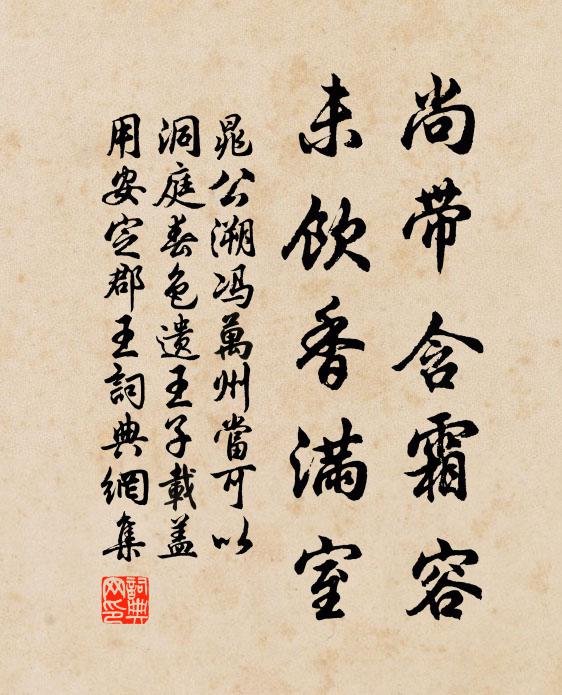 尚带含霜容
未饮香满室
晁公溯冯萬州當可以
洞庭春色遗王子載盖
用安定郡王詞典網集
詞典网印